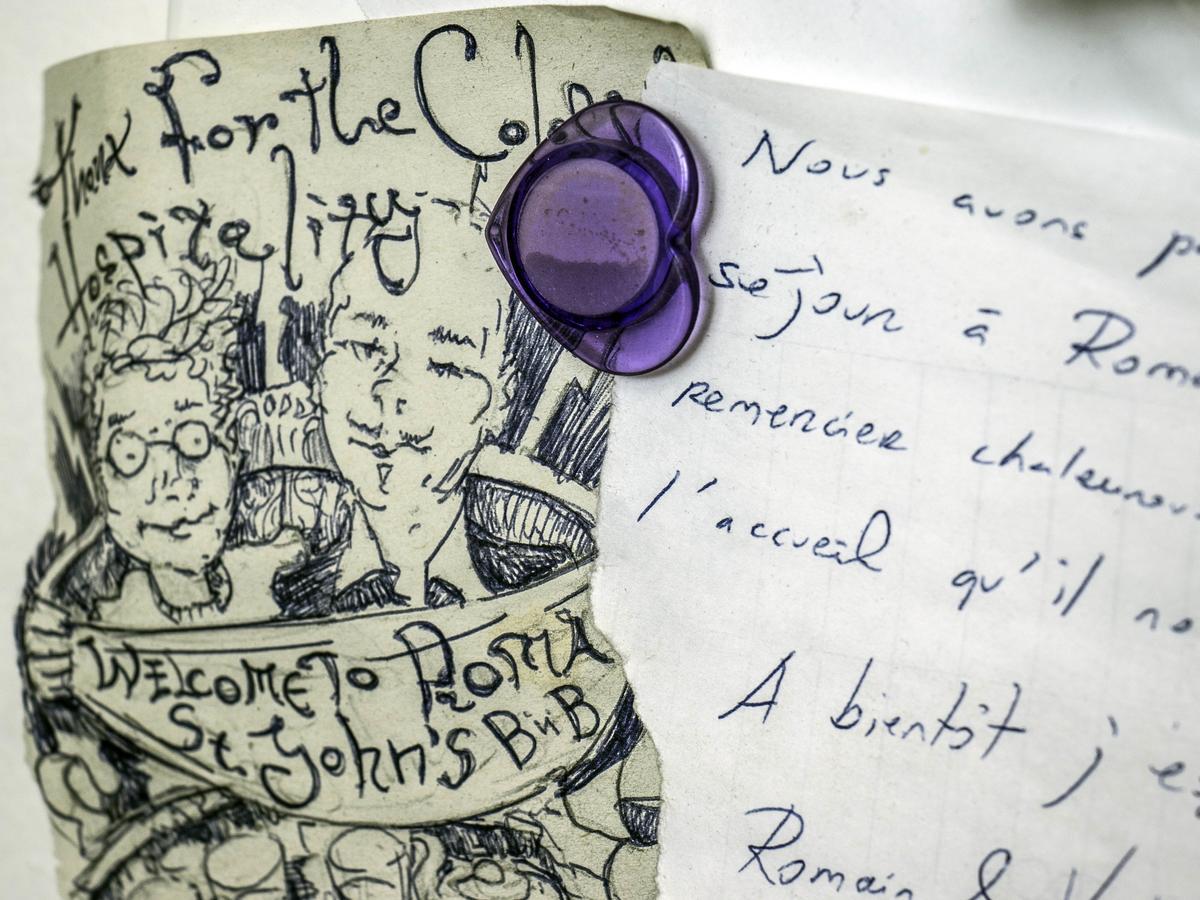 thanx for the
Hospitality
WELCOME TO ROMA
St. John's BnB
Nous avons
séjour à
remercier
l'accueil qu'il
A bientôt j'
Romain &